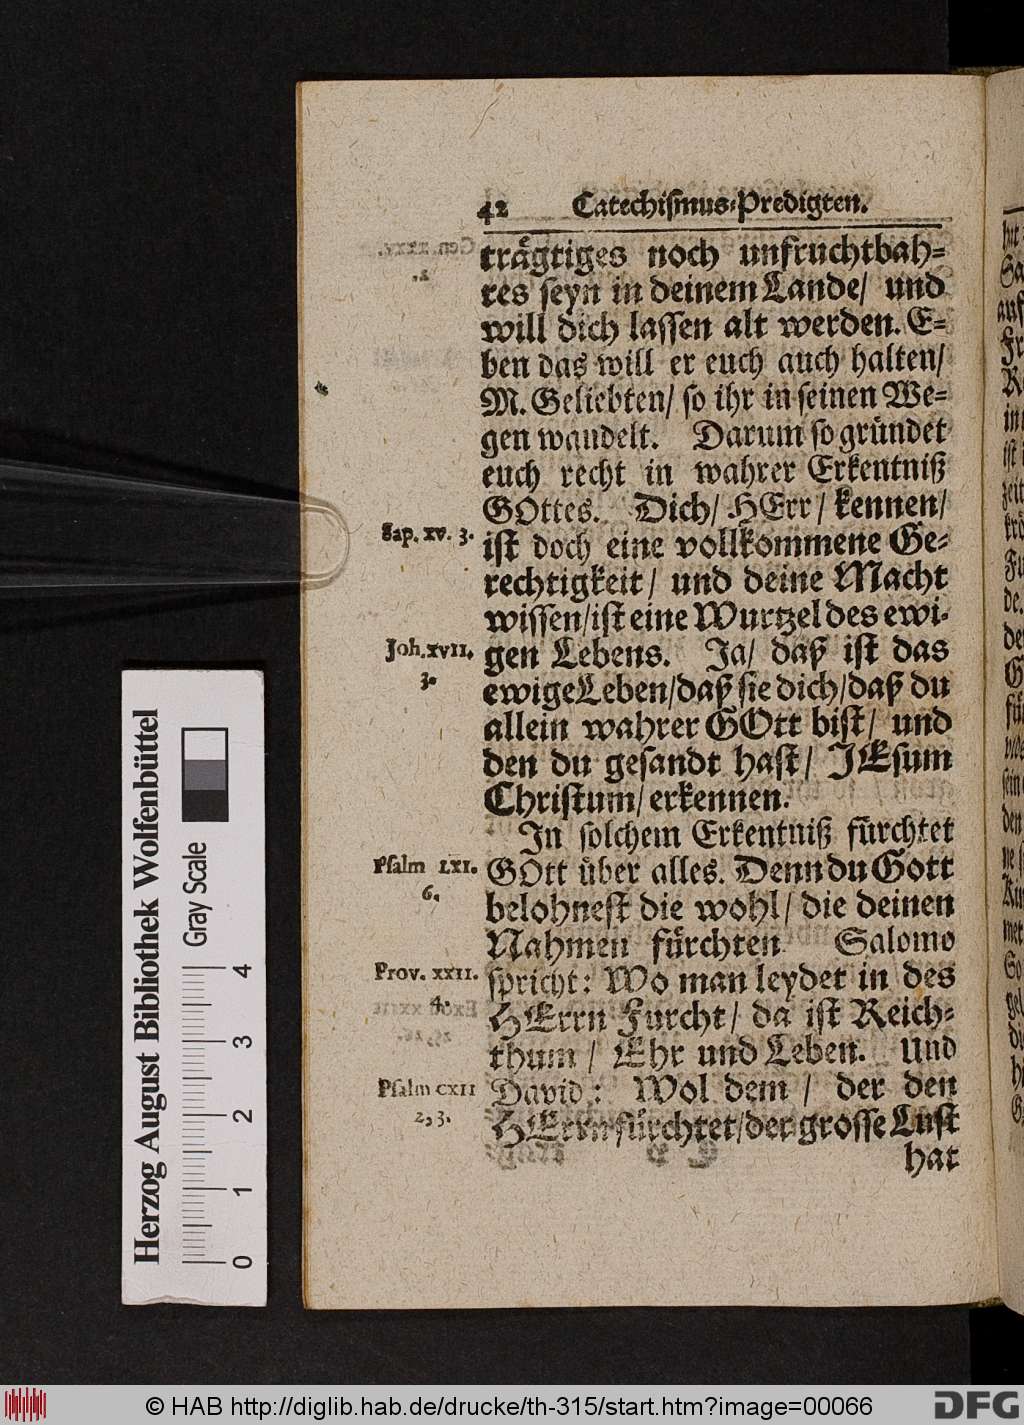 42 Catechiſmus-Predigten.
trägtiges noch unfruchtbah-
res ſeyn in deinem Lande/ und
will dich laſſen alt werden. E-
ben das will er euch auch halten/
M. Geliebten/ ſo ihr in ſeinen We-
gen wandelt. Darum ſo gründet
euch recht in wahrer Erkentniß
GOttes. Dich/ HErr/ kennen/
Sap. xv. 3.
iſt doch eine vollkommene Ge-
rechtigkeit/ und deine Macht
wiſſen/iſt eine Wurtzel des ewi-
Joh. xvii.
3.
gen Lebens. Ja/ daß iſt das
ewige Leben/daß ſie dich/daß du
allein wahrer GOtt biſt/ und
den du geſandt haſt/ JEſum
Chriſtum/ erkennen.
In ſolchem Erkentniß fürchtet
Pſalm LXI.
6.
GOtt über alles. Denn du Gott
belohneſt die wohl/ die deinen
Nahmen fürchten Salomo
Prov. xxii.
4.
ſpricht: Wo man leydet in des
HErrn Furcht/ da iſt Reich-
thum/ Ehr und Leben. Und
Pſalm cxii
2, 3.
David: Wol dem/ der den
HErrn fürchtet/der groſſe Luſt
hat
Herzog August Bibliothek Wolfenbüttel
Gray Scale
0 1 2 3 4
© HAB http://diglib.hab.de/drucke/th-315/start.htm?image=00066
DFG